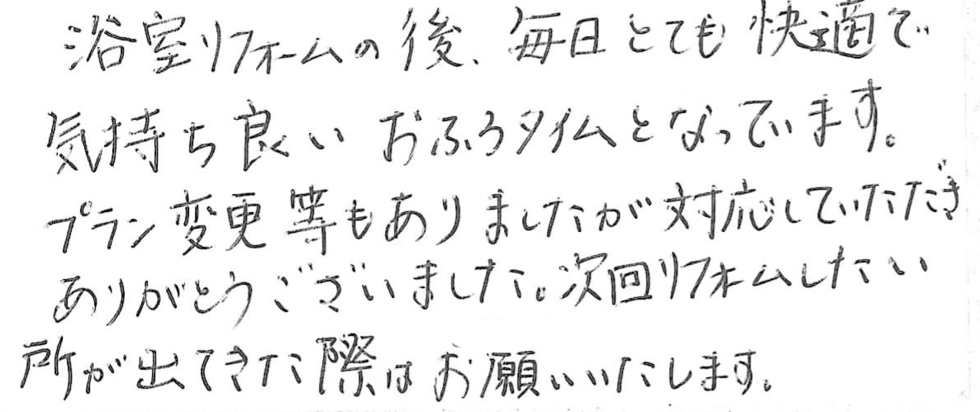 浴室リフォームの後、毎日とても快適で
気持ち良いおふろタイムとなっています。
プラン変更等もありましたが対応していただき
ありがとうございました。次回リフォームしたい
所が出てきた際はお願いいたします。